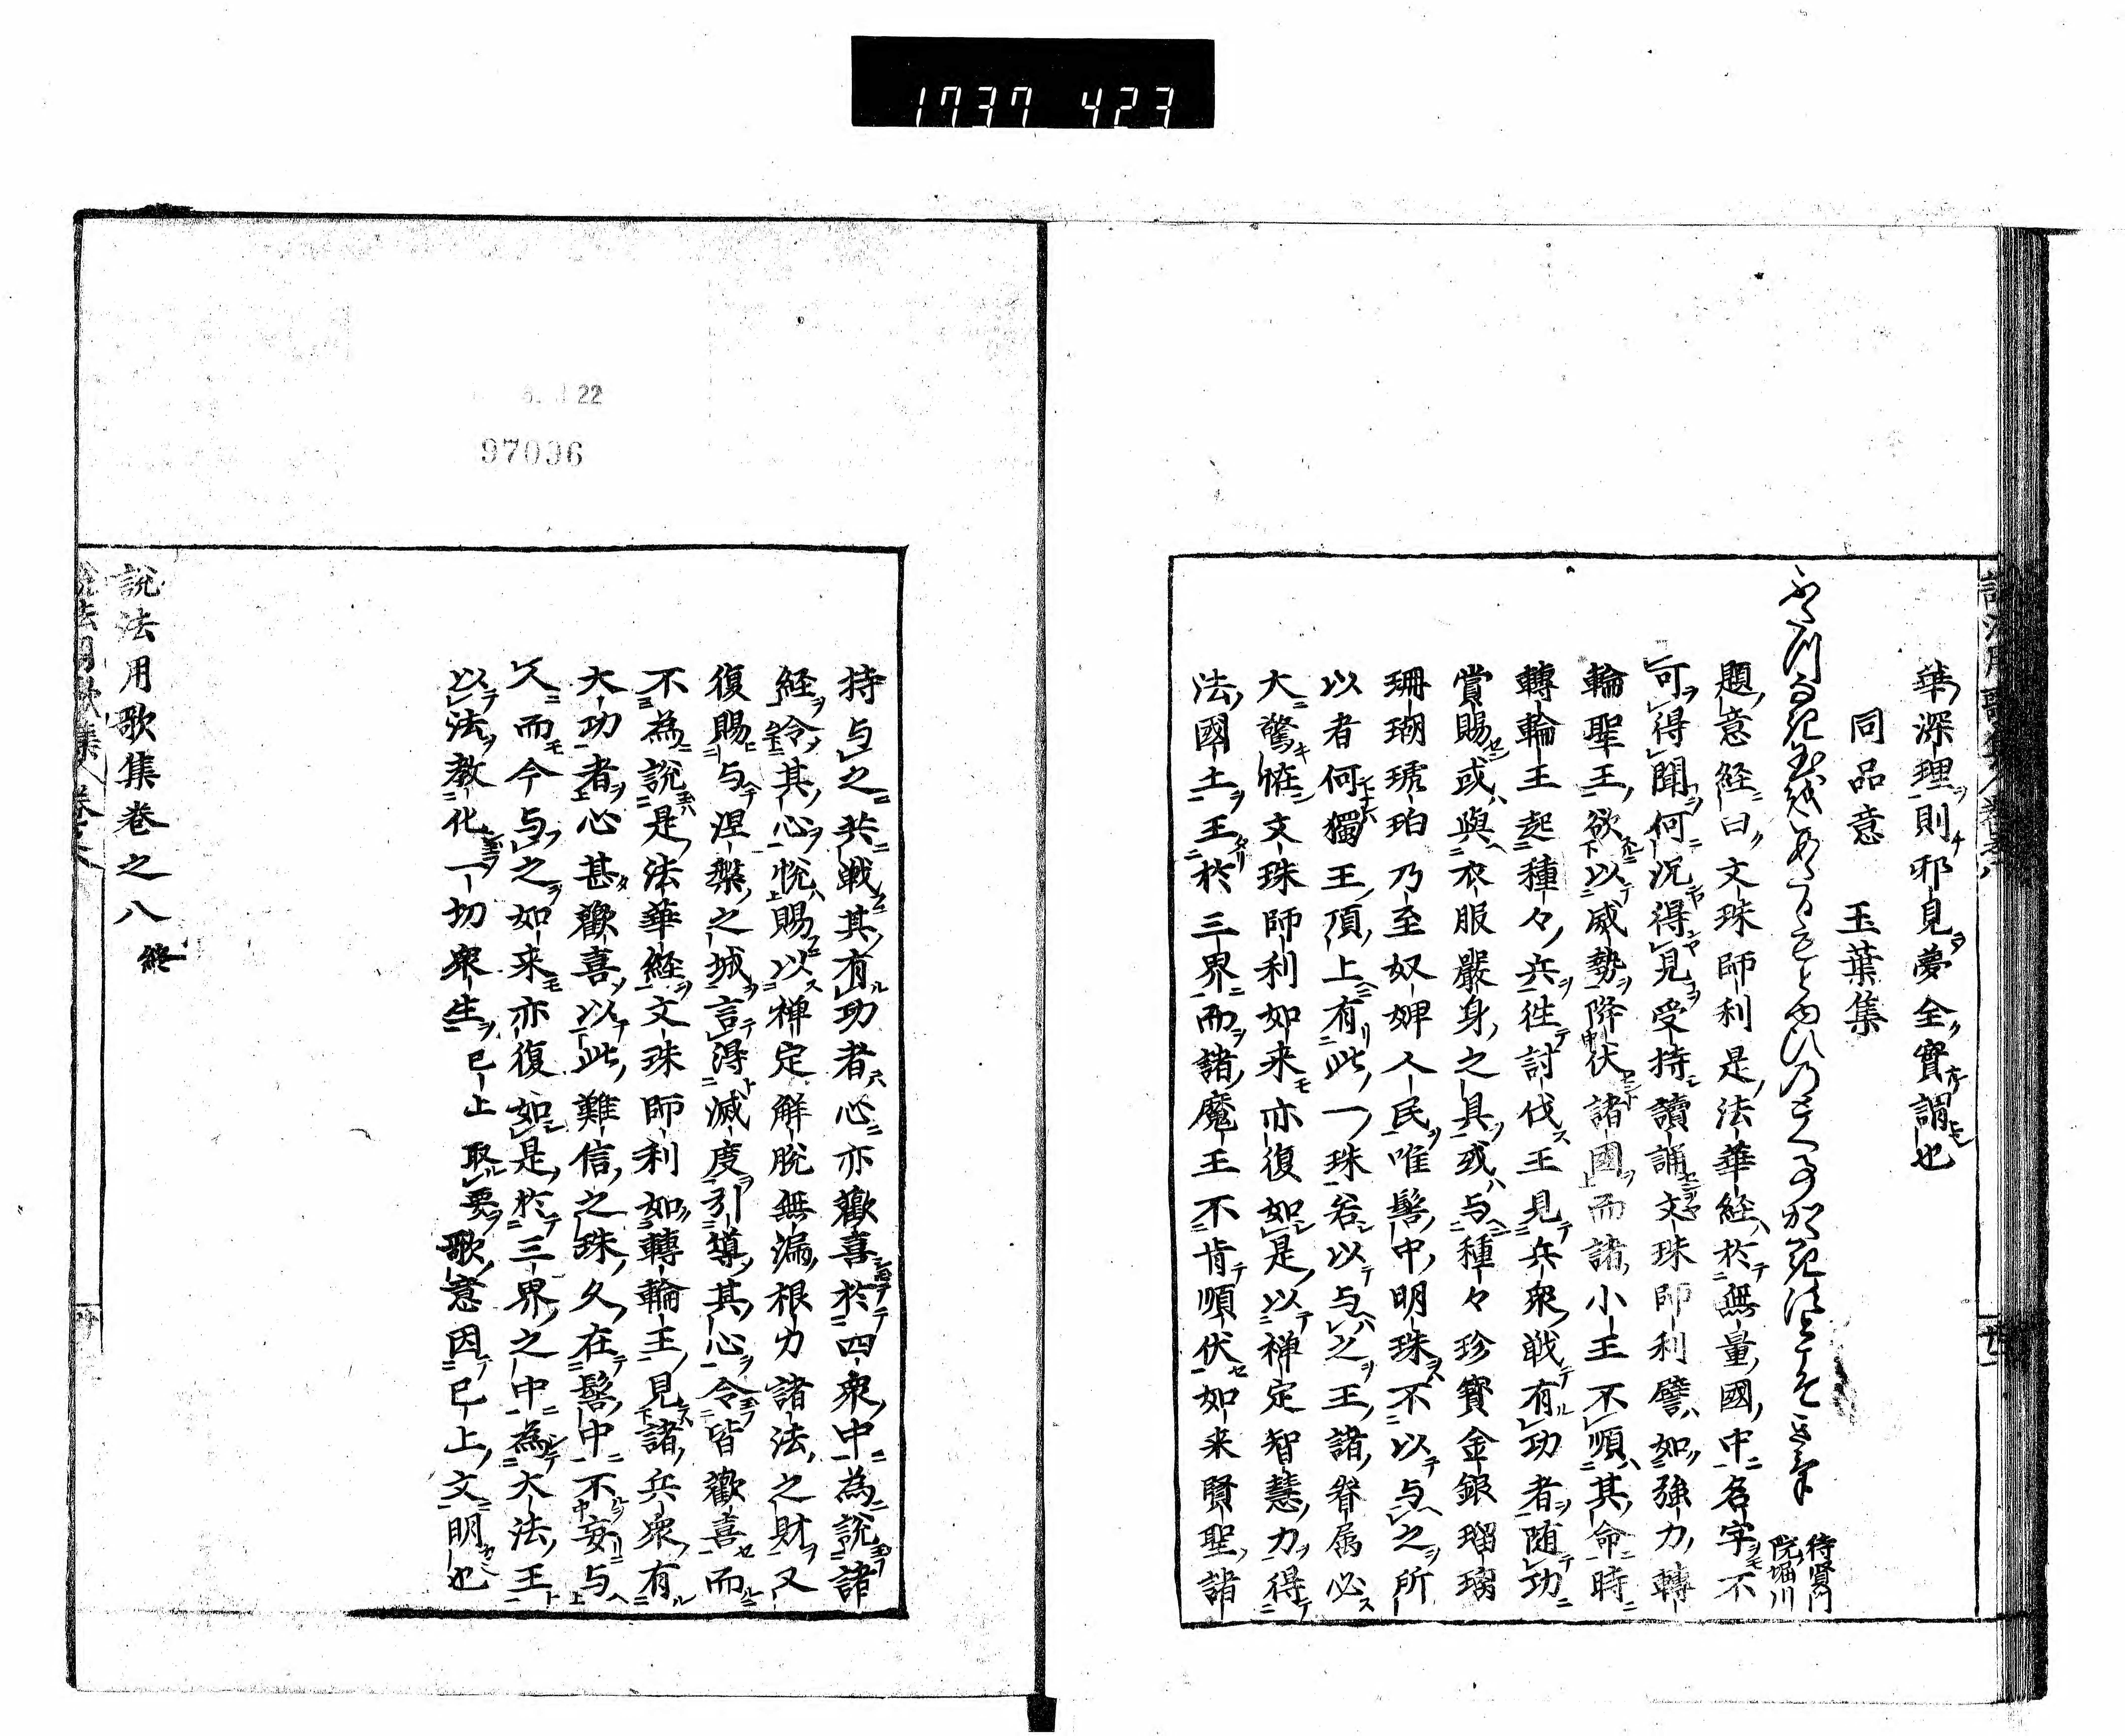 1737 423
華深理則邪見夢全實謂也
同品意 玉葉集
待賢門
院堀川
題意経曰文珠師利是法華経於無量國中名字不
可得聞何況得見受持讀誦文珠師利譬如強力轉
輪聖王欲以威勢降伏諸國而諸小王不順其命時
轉輪王起種々兵徃討伐王見兵衆戦有功者随功
賞賜或與衣服嚴身之具或与種々珍寶金銀瑠璃
珊瑚琥珀乃至奴婢人民唯髻中明珠不以与之所
以者何獨王頂上有此一珠若以与之王諸眷属必
大驚恠文珠師利如来亦復如是以禅定智慧力得
法國土王於三界而諸魔王不肯順伏如来賢聖諸
持与之共戦其有功者心亦歡喜於四衆中為説諸
経令其心悦賜以禅定解脱無漏根力諸法之財又
復賜与涅槃之城言得滅度引導其心令皆歡喜而
不為説是法華経文珠師利如轉輪王見諸兵衆有
大功者心甚歡喜以此難信之珠久在髻中不妄与
久而今与之如来亦復如是於三界之中為大法王
以法教化一切衆生已上取要歌意因已上文明也
説法用歌集巻之八終
22
97036